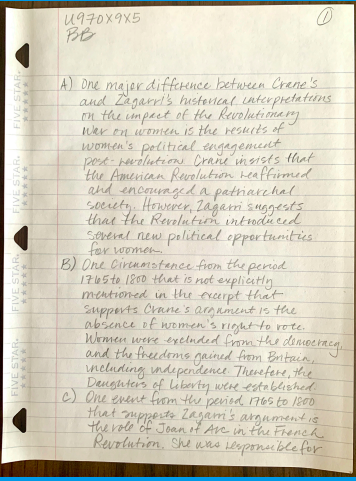 U970X9X5
BB
1
A) One major difference between Crane's
and Zagarri's historical interpretations
on the impact of the Revolutionary
War on women is the results of
women's political engagement
post-revolution. Crane insists that
the American Revolution reaffirmed
and encouraged a patriarchal
society. However, Zagarri suggests
that the Revolution introduced
several new political opportunities
for women.
B) One Circumstance from the period
1765 to 1800 that is not explicitly
mentioned in the excerpt that
supports Crane's argument is the
absence of women's right to vote.
Women were excluded from the democracy,
and the freedoms gained from Britain,
including independence. Therefore, the
Daughters of Liberty were established
C) One event from the period 1765 to 1800
that supports Zagarri's argument is
the role of Joan of Arc in the French
Revolution. She was responsible for
FIVE STAR.
FIVE STAR.
FIVE STAR.
FIVE STAR.